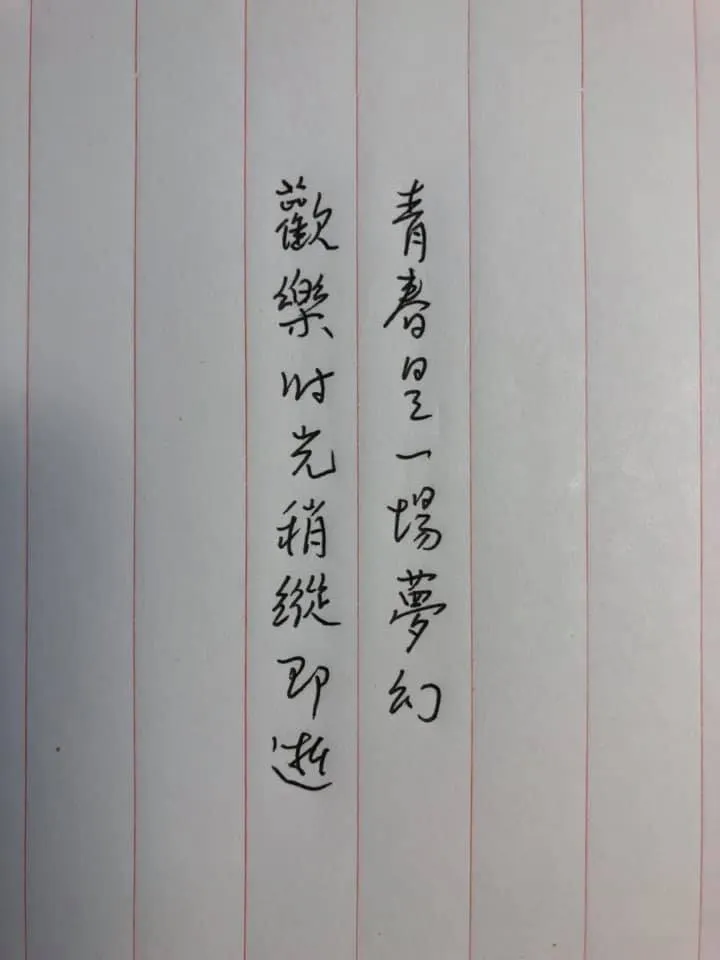 青春是一場夢幻
歡樂时光稍縱即逝